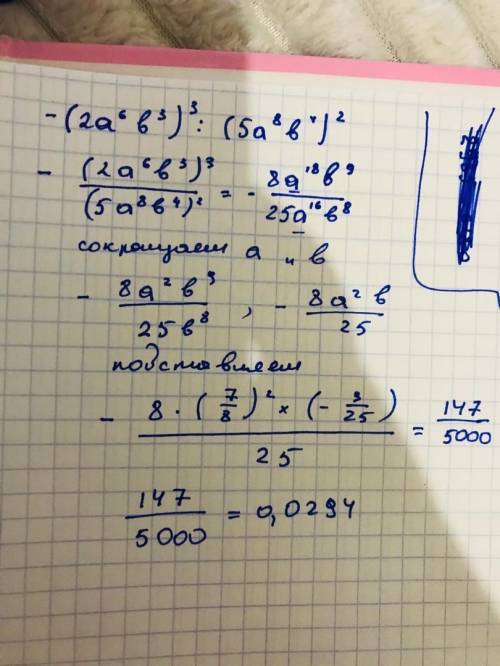 -(2a⁶b³)³ : (5a⁸b⁴)²
- (2a⁶b³)³/(5a⁸b⁴)² = - 8a¹⁸b⁹/25a¹⁶b⁸
сокращаем a и b
- 8a²b⁹/25b⁸ , - 8a²b/25
подставляем
- 8·(7/8)²×(-3/25)/25 = 147/5000
147/5000 = 0,0294